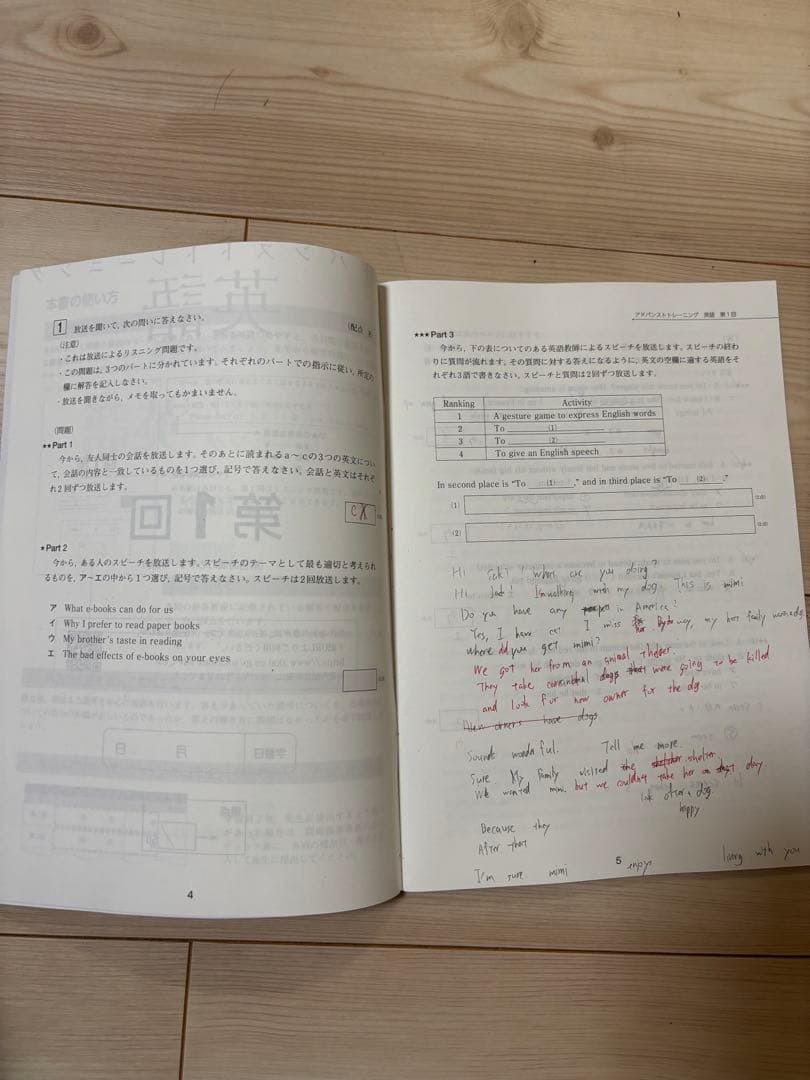 本書の使い方
1 放送を聞いて、次の問いに答えなさい。
(注意)
・これは放送によるリスニング問題です。
・この問題は、3つのパートに分かれています。それぞれのパートでの指示に従い、所定の
欄に解答を記入しなさい。
・放送を聞きながら、メモを取ってもかまいません。
(問題)
★★Part 1
今から、友人同士の会話を放送します。そのあとに読まれるa～cの3つの英文につい
て、会話の内容と一致しているものを1つ選び、記号で答えなさい。会話と英文はそれぞ
れ2回ずつ放送します。
c
第1回
★Part 2
今から、ある人のスピーチを放送します。スピーチのテーマとして最も適切と考えられ
るものを、ア～エの中から1つ選び、記号で答えなさい。スピーチは2回放送します。
ア What e-books can do for us
イ Why I prefer to read paper books
ウ My brother's taste in reading
エ The bad effects of e-books on your eyes
4
アドバンストトレーニング 英語 第1回
★★★Part 3
今から、下の表についてのある英語教師によるスピーチを放送します。スピーチの終わ
りに質問が流れます。その質問に対する答えになるように、英文の空欄に適する英語をそ
れぞれ3語で書きなさい。スピーチと質問は2回ずつ放送します。
Ranking Activity
1 A gesture game to express English words
2 To (1)
3 To (2)
4 To give an English speech
In second place is "To (1) ," and in third place is "To (2) ."
(1)
(2)
Hi what are you doing?
Hi Jack! I'm walking with my dog. This is mimi
Do you have any in America?
Yes, I have cat I miss her. By the way, my host family
where did you get mimi?
We got her from an animal
They take dogs that were going to be killed
and look for new owner for the dog.
have dogs.
Sounds wonderful. Tell me more.
Sure. My family visited the shelter
We wanted mimi. but we couldn't take her on that day.
look after a dog.
happy
Because they
After that
5
I'm sure mimi enjoys living with you